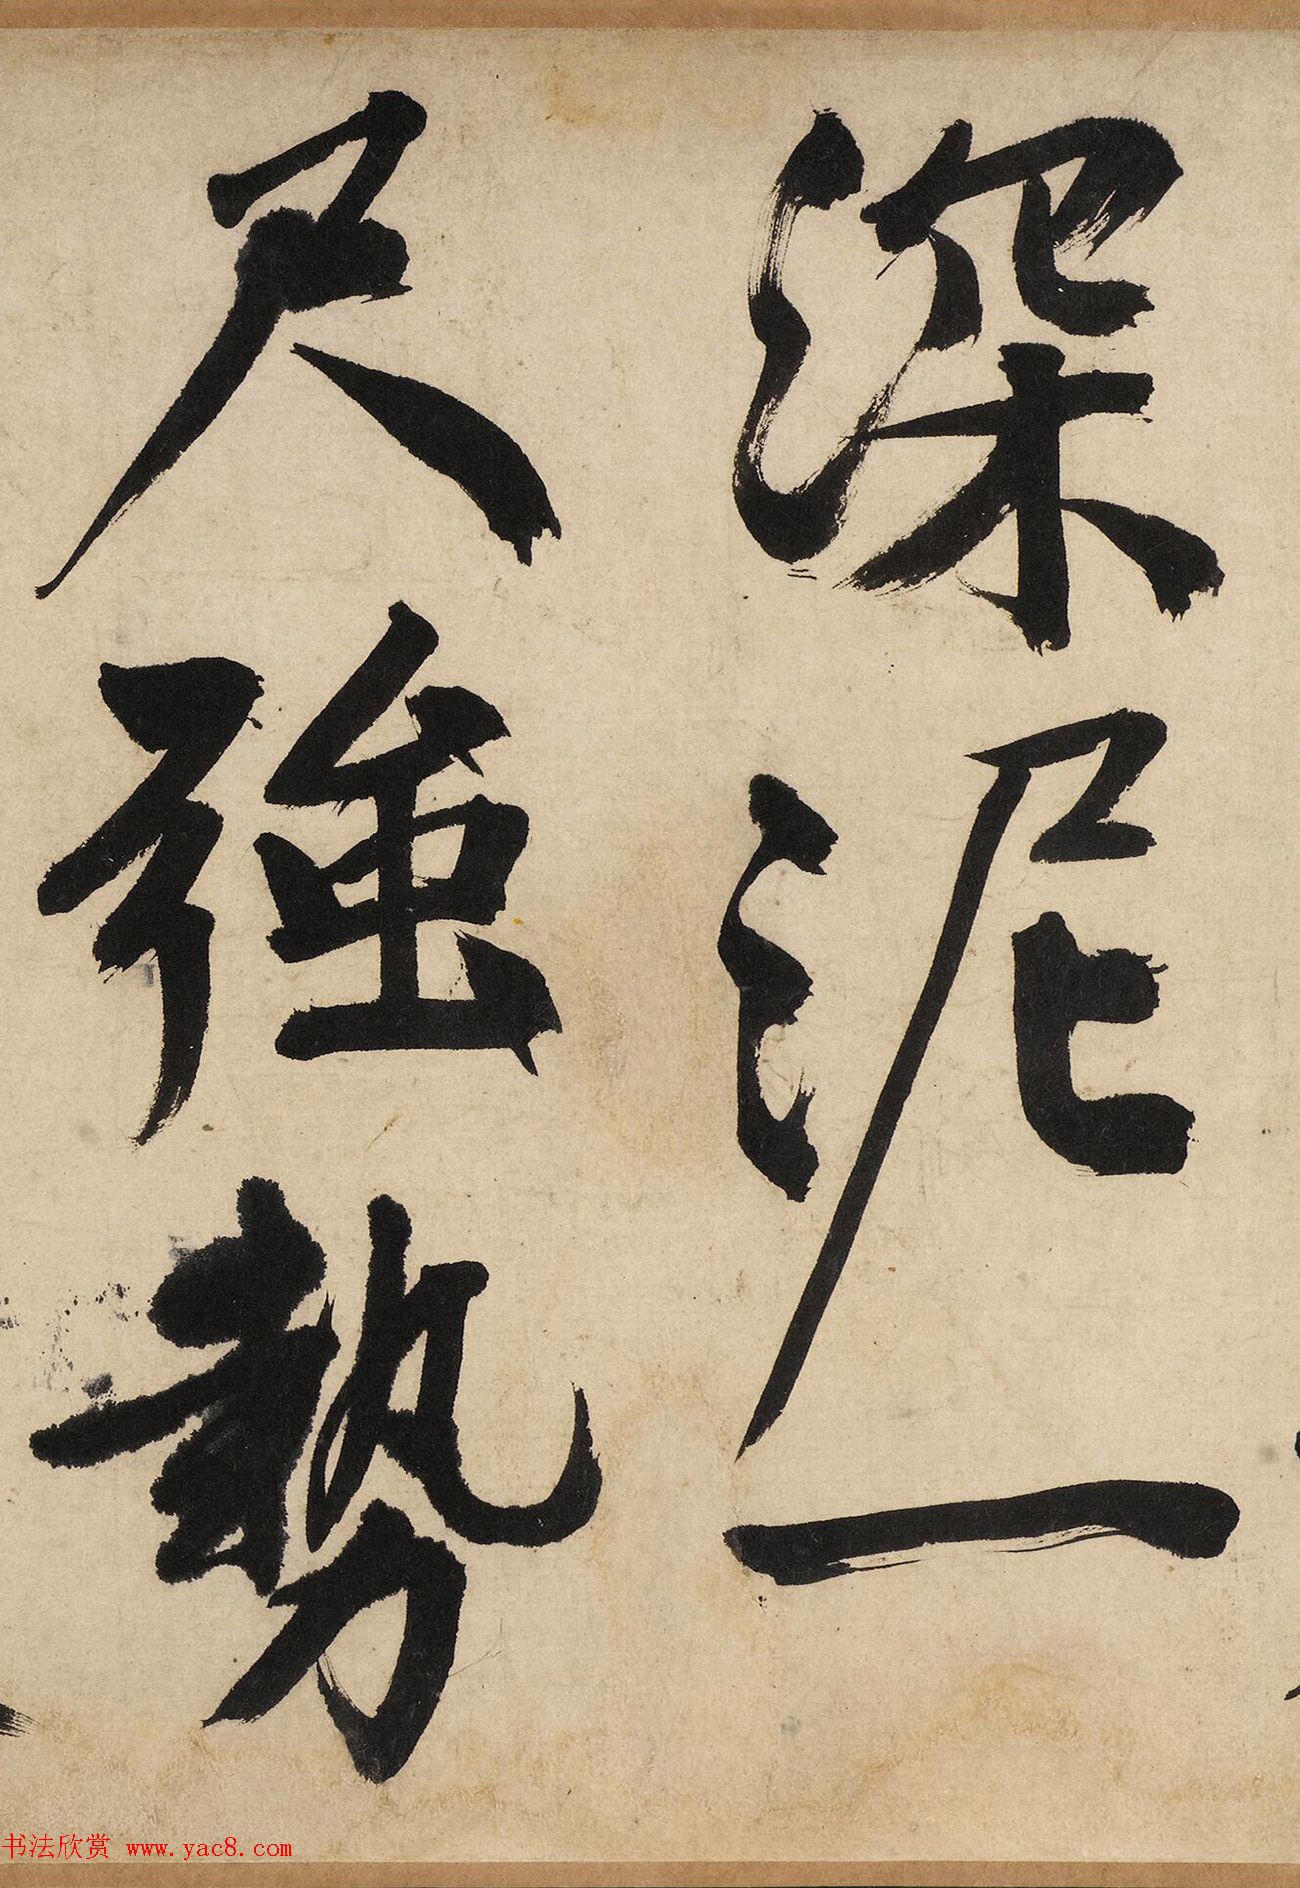 深泥一
尺強勢
书法欣赏 www.yac8.com